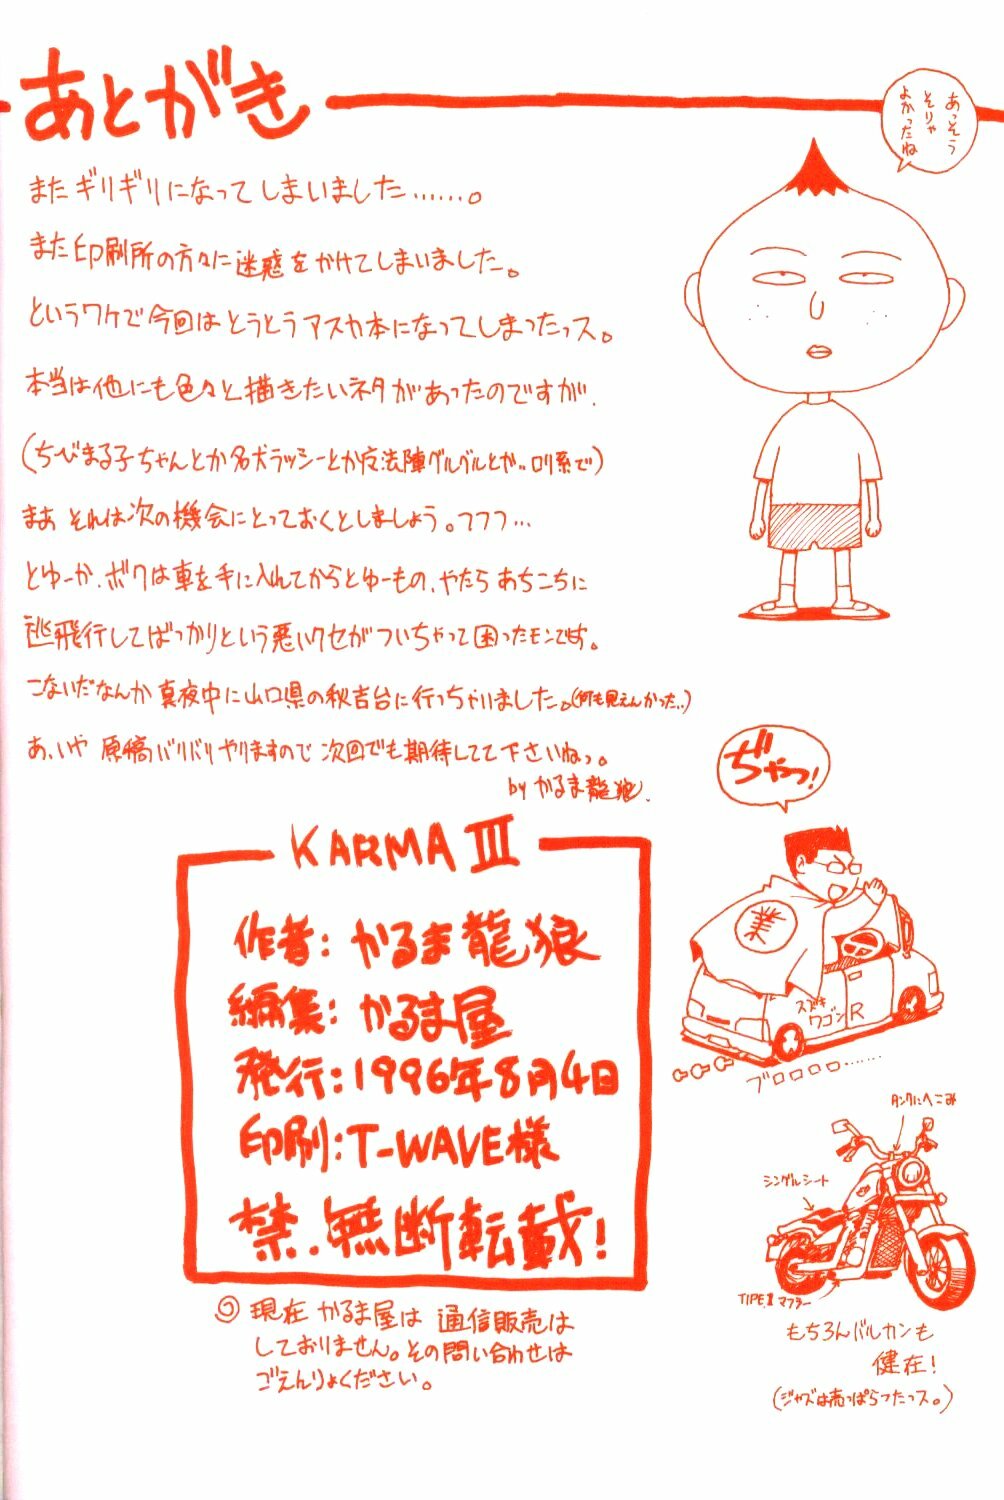 あとがき
あっそう
そりゃ
よかったね
またギリギリになってしまいました……。
また印刷所の方々に迷惑をかけてしまいました。
というワケで今回はとうとうアスカ本になってしまったっス。
本当は他にも色々と描きたいネタがあったのですが、
(ちびまる子ちゃんとか名犬ラッシーとか魔法陣グルグルとか、ロリ系で)
まあ それは次の機会にとっておくとしましょう。フフフ…
とゆーか、ボクは車を手に入れてからとゆーもの、やたらあちこちに
逃飛行してばっかりという悪いクセがついちゃって困ったモンです。
こないだなんか真夜中に山口県の秋吉台に行っちゃいました。(何も見えんかった…)
あ、いや 原稿バリバリやりますので 次回でも期待してて下さいねっ。
by かるま龍狼.
ぢゃっ!
業
スズキ
ワゴンR
ブロロロロ……
KARMA III
作者:かるま龍狼
編集:かるま屋
発行:1996年8月4日
印刷:T-WAVE様
禁.無断転載!
◎現在 かるま屋は 通信販売は
しておりません。その問い合わせは
ごえんりょください。
タンクにへこみ
シングルシート
TIPEⅡマフラー
もちろんバルカンも
健在!
(ジャズは売っぱらったっス。)